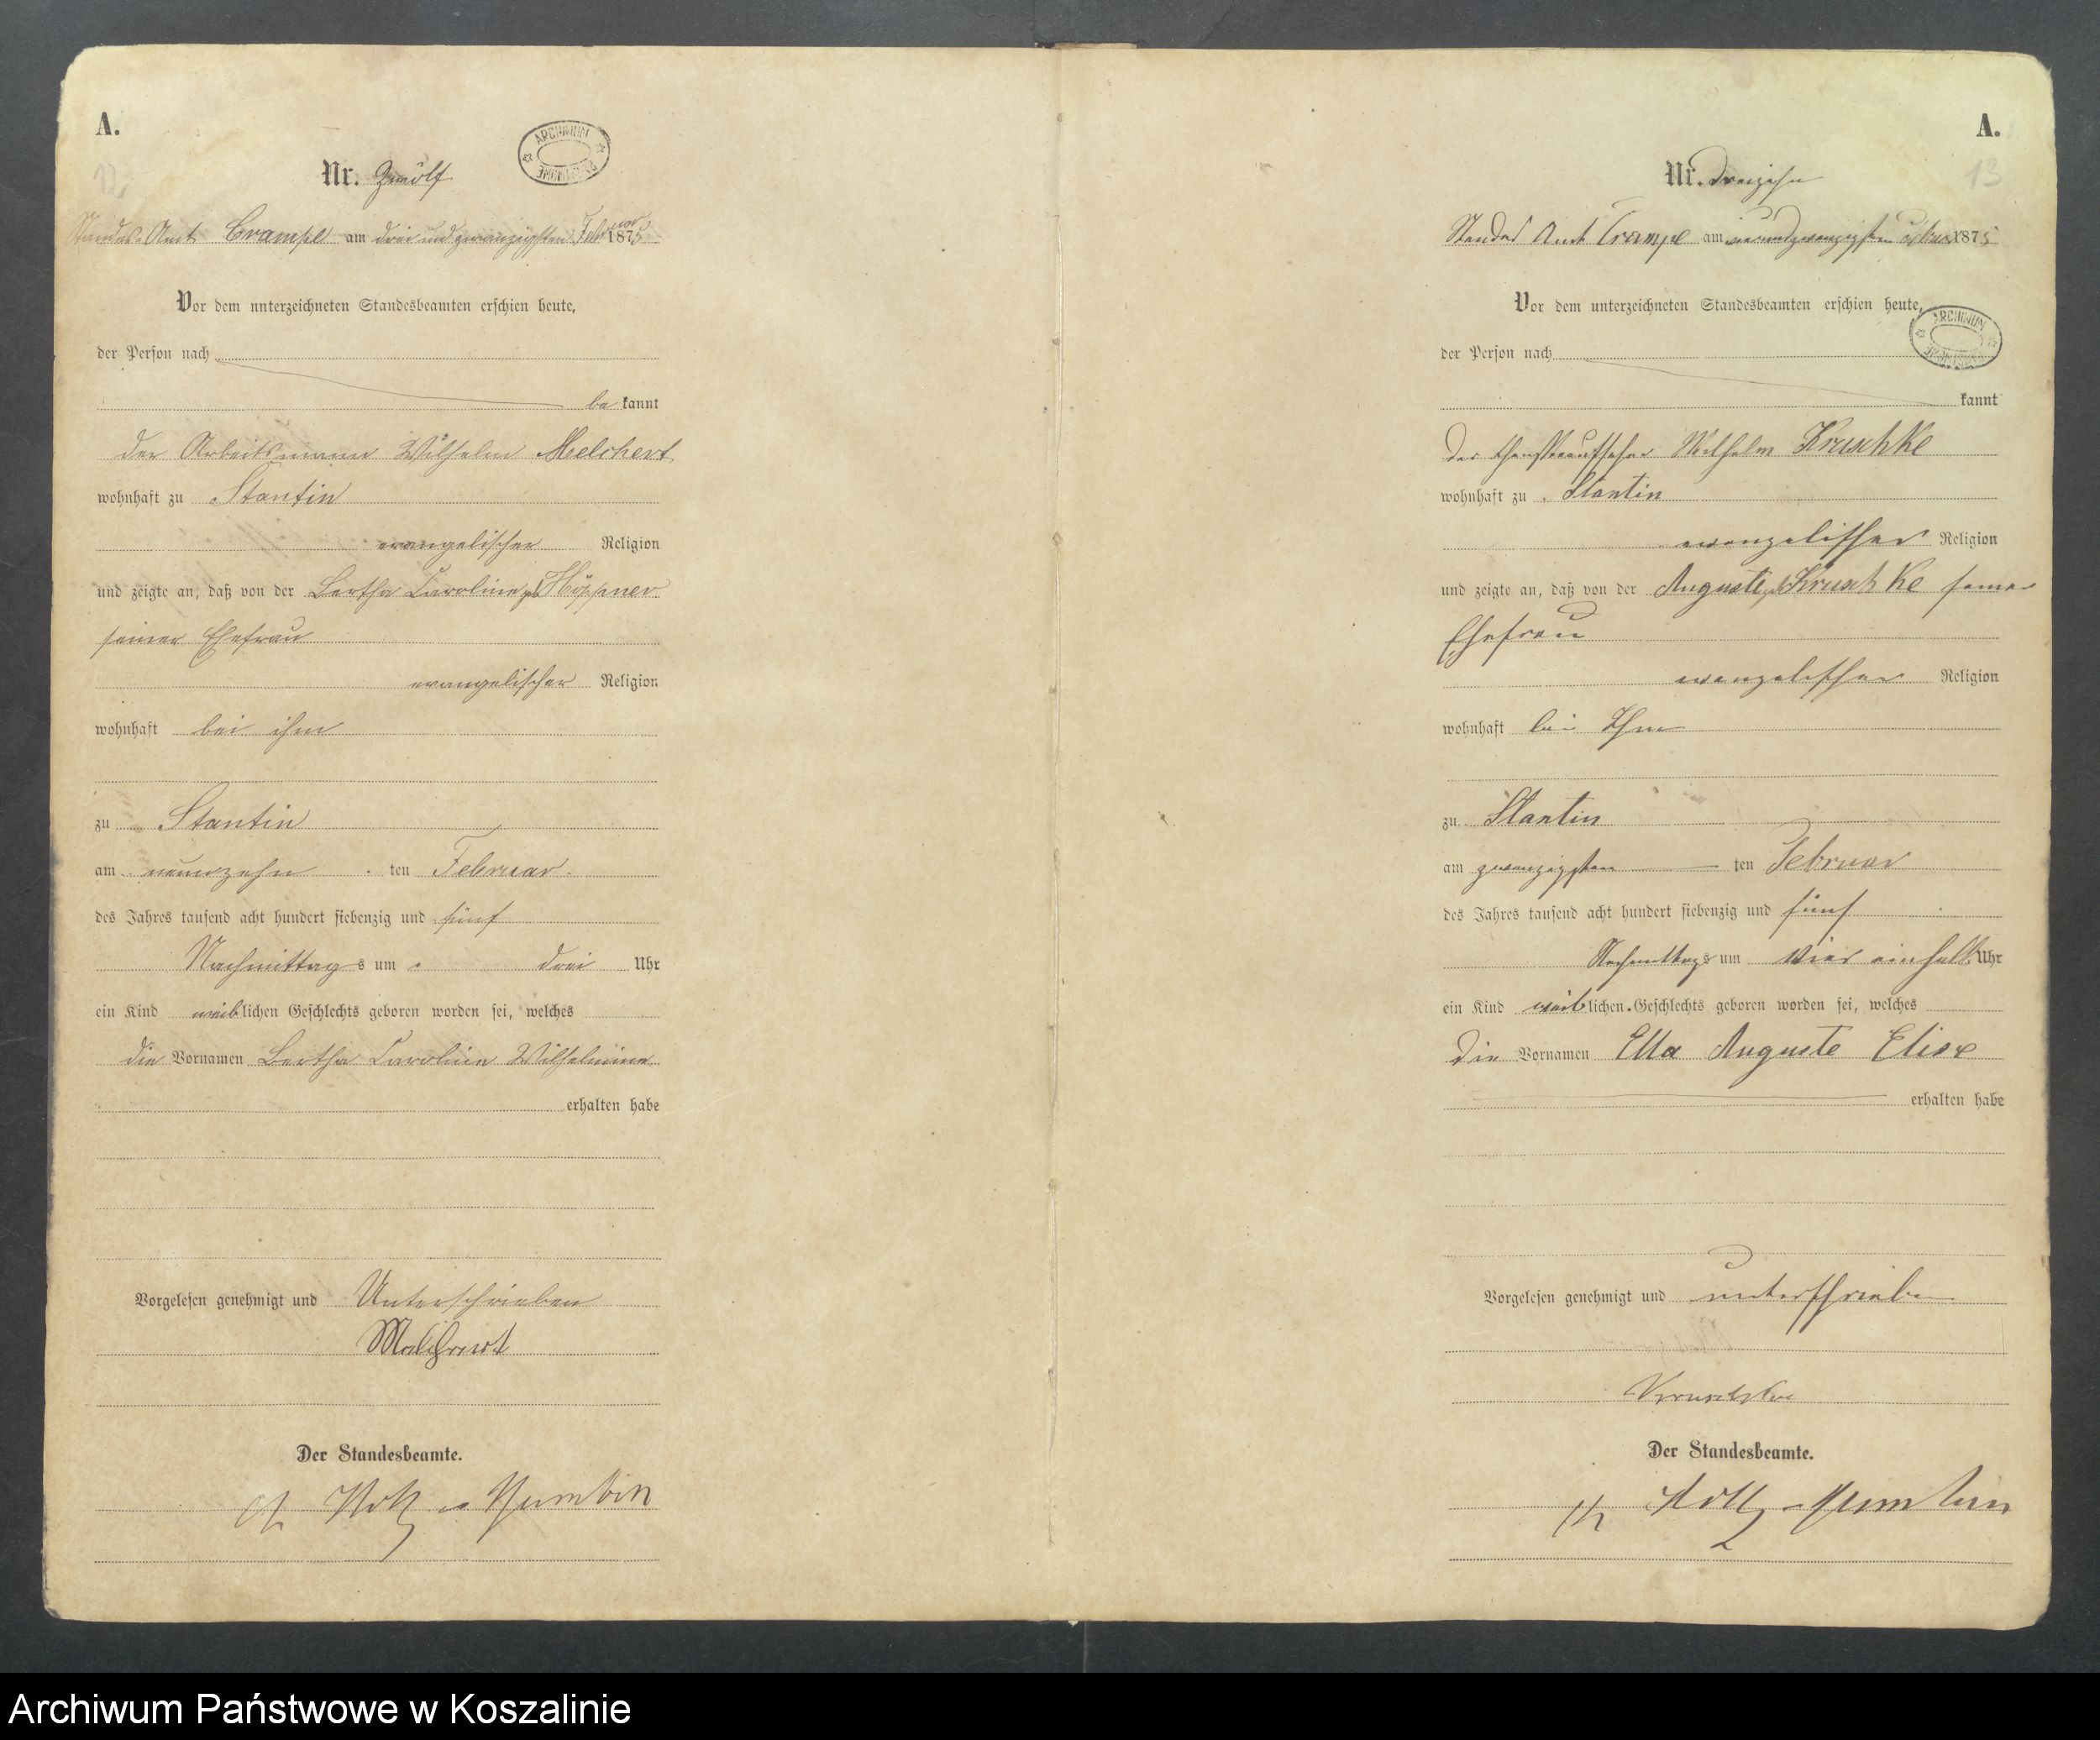 A.
12
Nr. Zwölf
ARCHIWUM PAŃSTWOWE
Standes-Amt Crampe am drei und zwanzigsten Februar 1875
Vor dem unterzeichneten Standesbeamten erschien heute,
der Person nach
be kannt
der Arbeitsmann Wilhelm Melchert
wohnhaft zu Stantin
evangelischer Religion
und zeigte an, daß von der Bertha Caroline geb Höppner
seiner Ehefrau
evangelischer Religion
wohnhaft bei ihm
zu Stantin
am neunzehn ten Februar
des Jahres tausend acht hundert siebenzig und fünf
Nachmittag s um drei Uhr
ein Kind weiblichen Geschlechts geboren worden sei, welches
die Vornamen Bertha Caroline Wilhelmine
erhalten habe
Vorgelesen genehmigt und Unterschrieben
Melchert
Der Standesbeamte.
A.
13
Nr. Dreizehn
Standes Amt Crampe am vierundzwanzigsten Februar 1875
Vor dem unterzeichneten Standesbeamten erschien heute,
ARCHIWUM PAŃSTWOWE
der Person nach
kannt
Der Wilhelm Kruschke
wohnhaft zu Stantin
evangelischer Religion
und zeigte an, daß von der Auguste geb Kruschke seiner
Ehefrau
evangelischer Religion
wohnhaft bei Ihm
zu Stantin
am zwanzigsten ten Februar
des Jahres tausend acht hundert siebenzig und fünf
Nachmittags um vier einhalb Uhr
ein Kind weiblichen Geschlechts geboren worden sei, welches
Die Vornamen Ella Auguste Elise
erhalten habe
Vorgelesen genehmigt und unterschrieben
Kruschke
Der Standesbeamte.
Archiwum Państwowe w Koszalinie